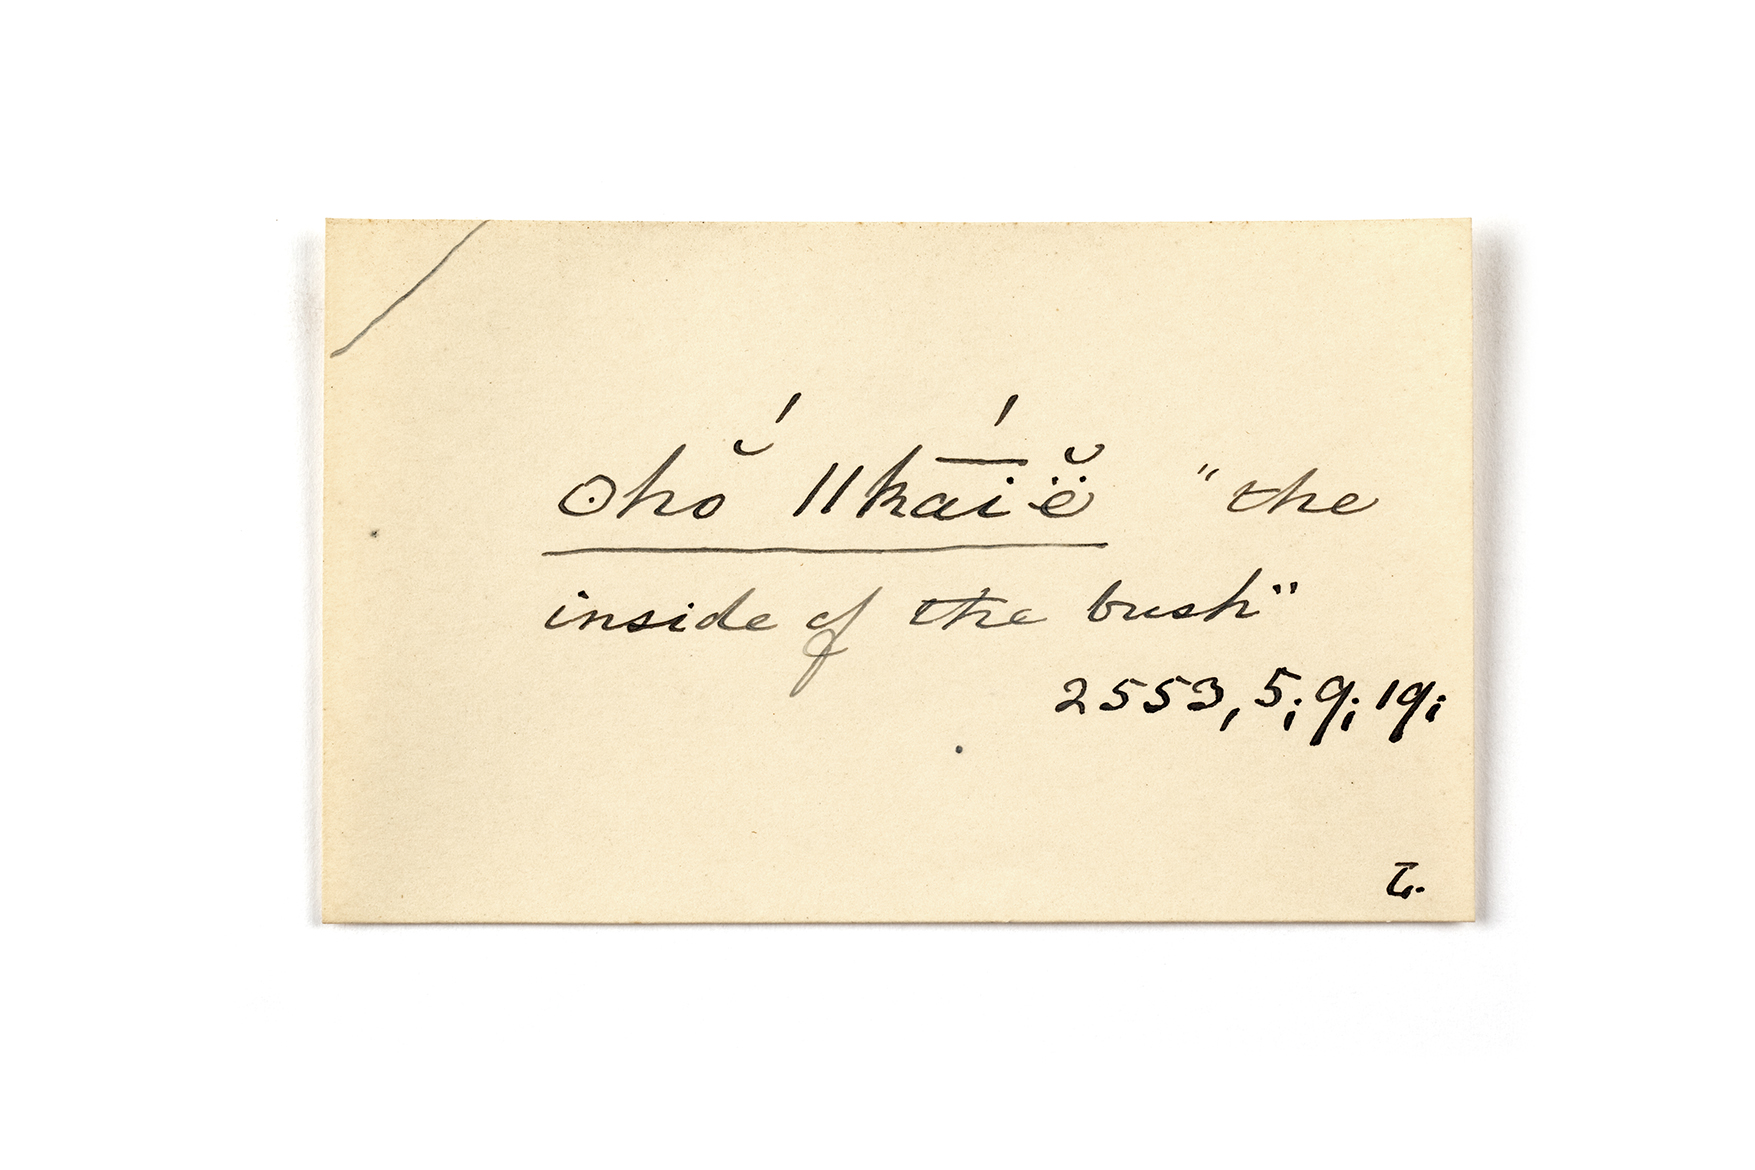 ʘhŏ́ ǁkā́ĭë̆ "the
inside of the bush"
2553, 5; 9; 19;
T.